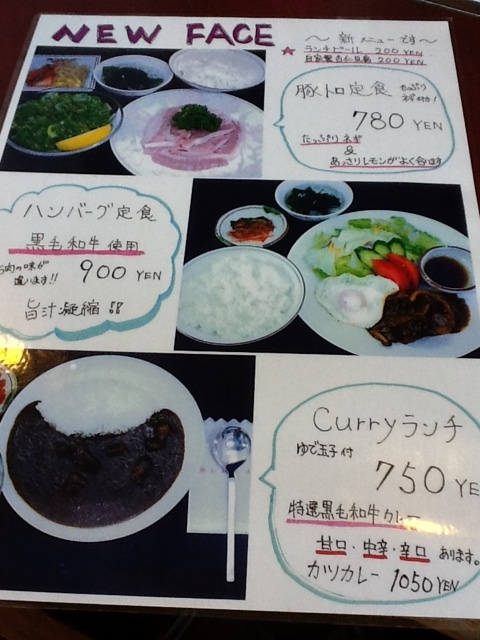 NEW FACE
～新メニューです～
ランチビール 200 YEN
自家製杏仁豆腐 200 YEN
豚トロ定食 たっぷり
ネギ付!
780 YEN
たっぷりネギ
&
あっさりレモンがよく合います
ハンバーグ定食
黒毛和牛使用
肉の味が
違います!! 900 YEN
旨汁凝縮!!
Curryランチ
ゆで玉子付
750 YE
特選黒毛和牛カレー
甘口・中辛・辛口 あります。
カツカレー 1050 YEN